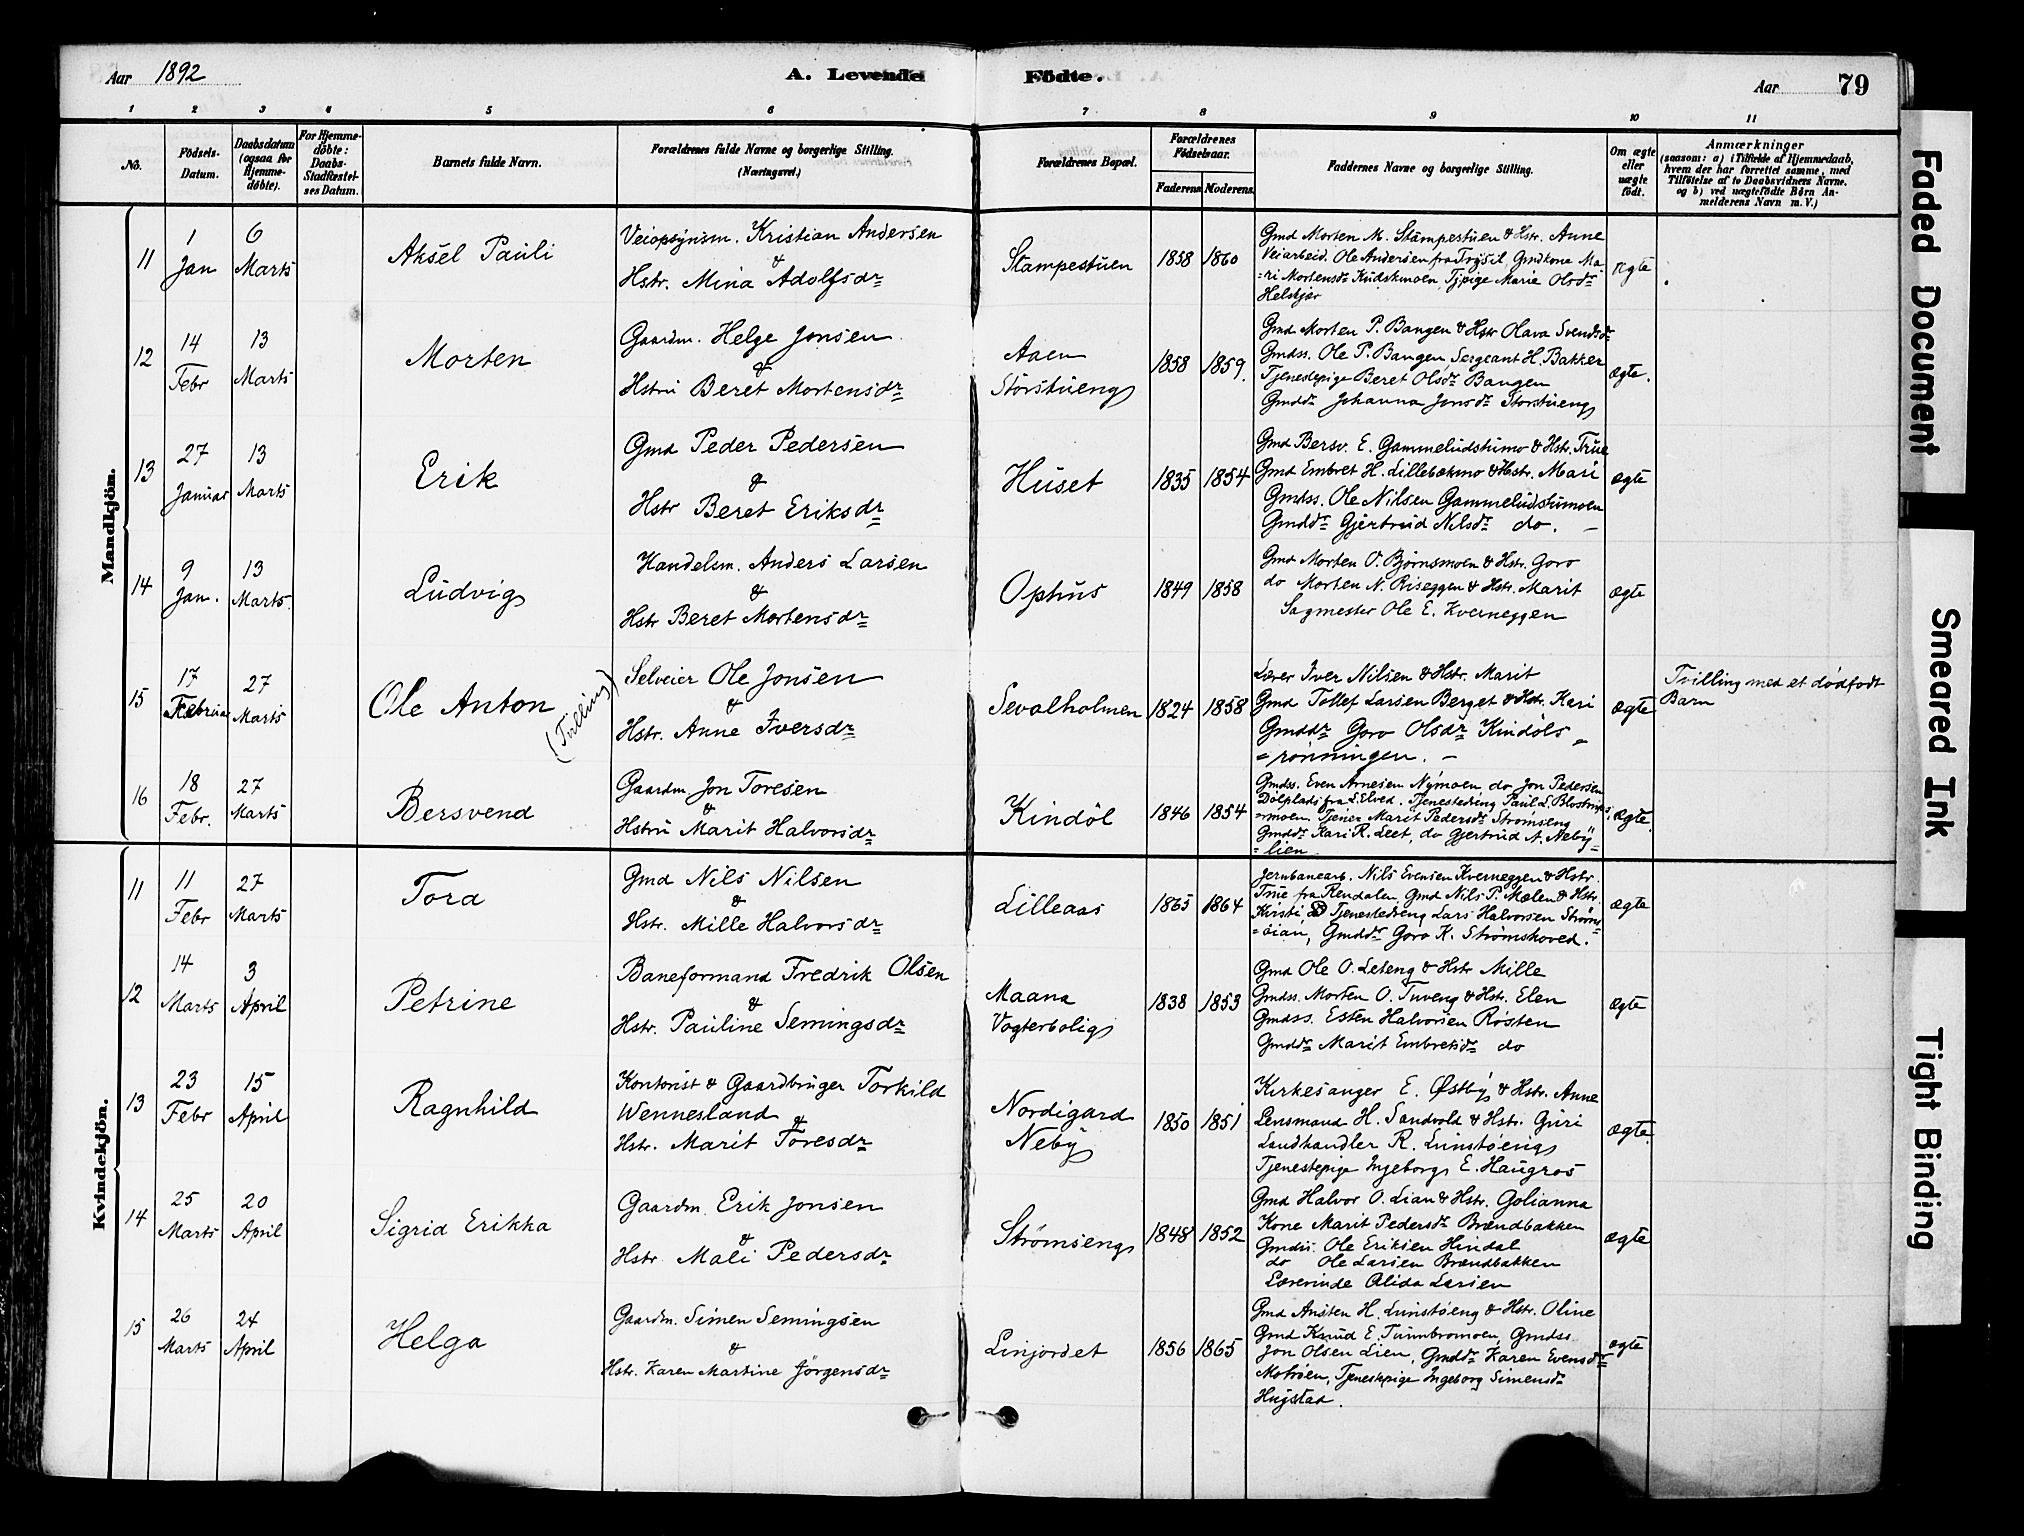 Aar 1892
A. Levende Födte.
Aar 79
1 2 3 4 5 6 7 8 9 10 11
No.
Födsels-Datum.
Daabsdatum (ogsaa for Hjemmedöbte).
For Hjemmedöbte: Daabs-Stadfæstelses Datum.
Barnets fulde Navn.
Forældrenes fulde Navne og borgerlige Stilling. (Næringsvei.)
Forældrenes Bopæl.
Forældrenes Födselsaar.
Faderens Moderens
Faddernes Navne og borgerlige Stilling.
Om ægte eller uægte födt.
Anmærkninger
(saasom: a) i Tilfælde af Hjemmedaab, hvem der har forrettet samme, med Tilföielse af to Daabsvidners Navne. og b) ved uægtefödte Börn Anmelderens Navn m. V.)
Mandkjön.
11
1 Jan
6 Marts
Aksel Pauli
Veiopsynsm. Kristian Andersen
&
Hstr. Mina Adolfsdr
Stampestuen
1858 1860
Gmd Morten M. Stampestuen & Hstr. Anne
Veiarbeid. Ole Andersen fra Trysil, Gmdkone Ma
=ri Mortensdr Kudskmoen, Tjpige Marie Olsdr
Helskjær
ægte
12
14 Febr
13 Marts
Morten
Gaardm. Helge Jonsen
&
Hstru Beret Mortensdr
Aaen
Storstueng
1858 1859.
Gmd Morten P. Bangen & Hstr Olava Svendsdr
Gmdss. Ole P. Bangen, Sergeant H. Bakker
Tjenestepige Beret Olsdr Bangen
Gmddr Johanna Jonsdr Storstueng
ægte.
13
27 Januar
13 Marts
Erik
Gmd Peder Pedersen
&
Hstr Beret Eriksdr
Huset
1835 1854
Gmd Bersv. E. Gammeludstumo & Hstr. True
Gmd Embret H. Lillebækmo & Hstr. Mari
Gmdss. Ole Nilsen Gammeludstumoen
Gmddr Gjertrud Nilsdr do. –
ægte
14
9 Jan.
13 Marts.
Ludvig
Handelsm. Anders Larsen
&
Hstr Beret Mortensdr
Ophus
1849 1858
Gmd Morten O. Bjørnsmoen & Hstr. Goro
do Morten N. Riseggen & Hstr. Marit
Sagmester Ole E. Kverneggen
ægte
15
17 Februar
27 Marts
Ole Anton
(Tvilling)
Selveier Ole Jonsen
&
Hstr. Anne Iversdr
Sevalholmen
1824 1858
Lærer Iver Nilsen & Hstr. Marit
Gmd Tollef Larsen Berget & Hstr. Kari
Gmddr Goro Olsdr Kindöls
=rönningen. –
ægte
Tvilling med et dødfødt
Barn
16
18 Febr.
27 Marts
Bersvend
Gaardm. Jon Toresen
&
Hstru Marit Halvorsdr
Kindöl
1846 1854
Gmdss. Even Arnesen Nymoen, do Jon Pedersen
Dölplads fra L.Elved. Tjenestedreng Paul L. Blostrups
=moen. Tjener Marit Pedersdr Strömseng
Gmddr Kari R. Leet, do Gjertrud A. Neby
=lien
ægte.
Kvindekjön.
11
11 Febr
27 Marts
Tora
Gmd Nils Nilsen
&
Hstr. Mille Halvorsdr
Lilleaas
1865 1864
Jernbanearb. Nils Evensen Kverneggen & Hstr.
True fra Rendalen, Gmd Nils P. Mælen & Hstr.
Kirsti, Tjenestedreng Lars Halvorsen Ströms
=öian, Gmddr Goro K. Strömshoved.
ægte
12
14 Marts
3 April
Petrine
Baneformand Fredrik Olsen
&
Hstr. Pauline Semingsdr
Maana
Vogterbolig
1838 1853
Gmd Ole O. Leteng & Hstr Mille
Gmdss. Morten O. Tuveng & Hstr. Elen
Gmdss. Esten Halvorsen Røsten
Gmddr Marit Embretsdr do
ægte
13
23 Febr
15 April
Ragnhild
Kontorist & Gaardbruger Torkild
Wennesland
&
Hstr. Marit Toresdr
Nordigard
Neby
1850 1851
Kirkesanger E. Østby & Hstr. Anne
Lensmand H. Sandvold & Hstr. Guri
Landhandler R. Lunstöeng
Tjenestepige Ingeborg E. Haugros
ægte.
14
25 Marts
20 April
Sigrid Erikka
Gaardm. Erik Jonsen
&
Hstr. Mali Pedersdr
Strømseng
1848 1852
Gmd Halvor O. Lian & Hstr. Golianna
Kone Marit Pedersdr Brændbakken
Gmdss. Ole Eriksen Hindal
do Ole Larsen Brændbakken
Lærerinde Alida Larsen
ægte
15
26 Marts
24 April
Helga
Gaardm. Simen Semingsen
&
Hstr. Karen Martine Jörgensdr
Linjordet
1856 1865
Gmd Ansten H. Lunstöeng & Hstr. Oline
Gmd Knud E. Tumbromoen, Gmdss.
Jon Olsen Lien, Gmddr Karen Evensdr
Motröen, Tjenestepige Ingeborg Simensdr
Hugstad.
ægte
Faded Document
Smeared Ink
Tight Binding